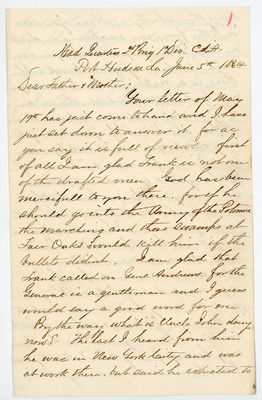 1.
Head Quarters 2d Brig 1st Div. C d'A.
Port Hudson La, June 5th 1864
Dear Father & Mother;
Your letter of May
19th has just come to hand and I have
just set down to answer it for as
you say it is full of news. first
of all I am glad Frank is not one
of the drafted men. God has been
mercifull to you there, for if he
should go into the Army of the Potomac
the Marching and those Swamps at
Fair Oaks would kill him if the
bullets did'ent. I am glad that
Frank called on Genl Andrews, for the
General is a gentleman and I guess
would say a good word for me.
By the way what is Uncle John doing
now? The last I heard from him
he was in New York City and was
at work there, but said he expected to